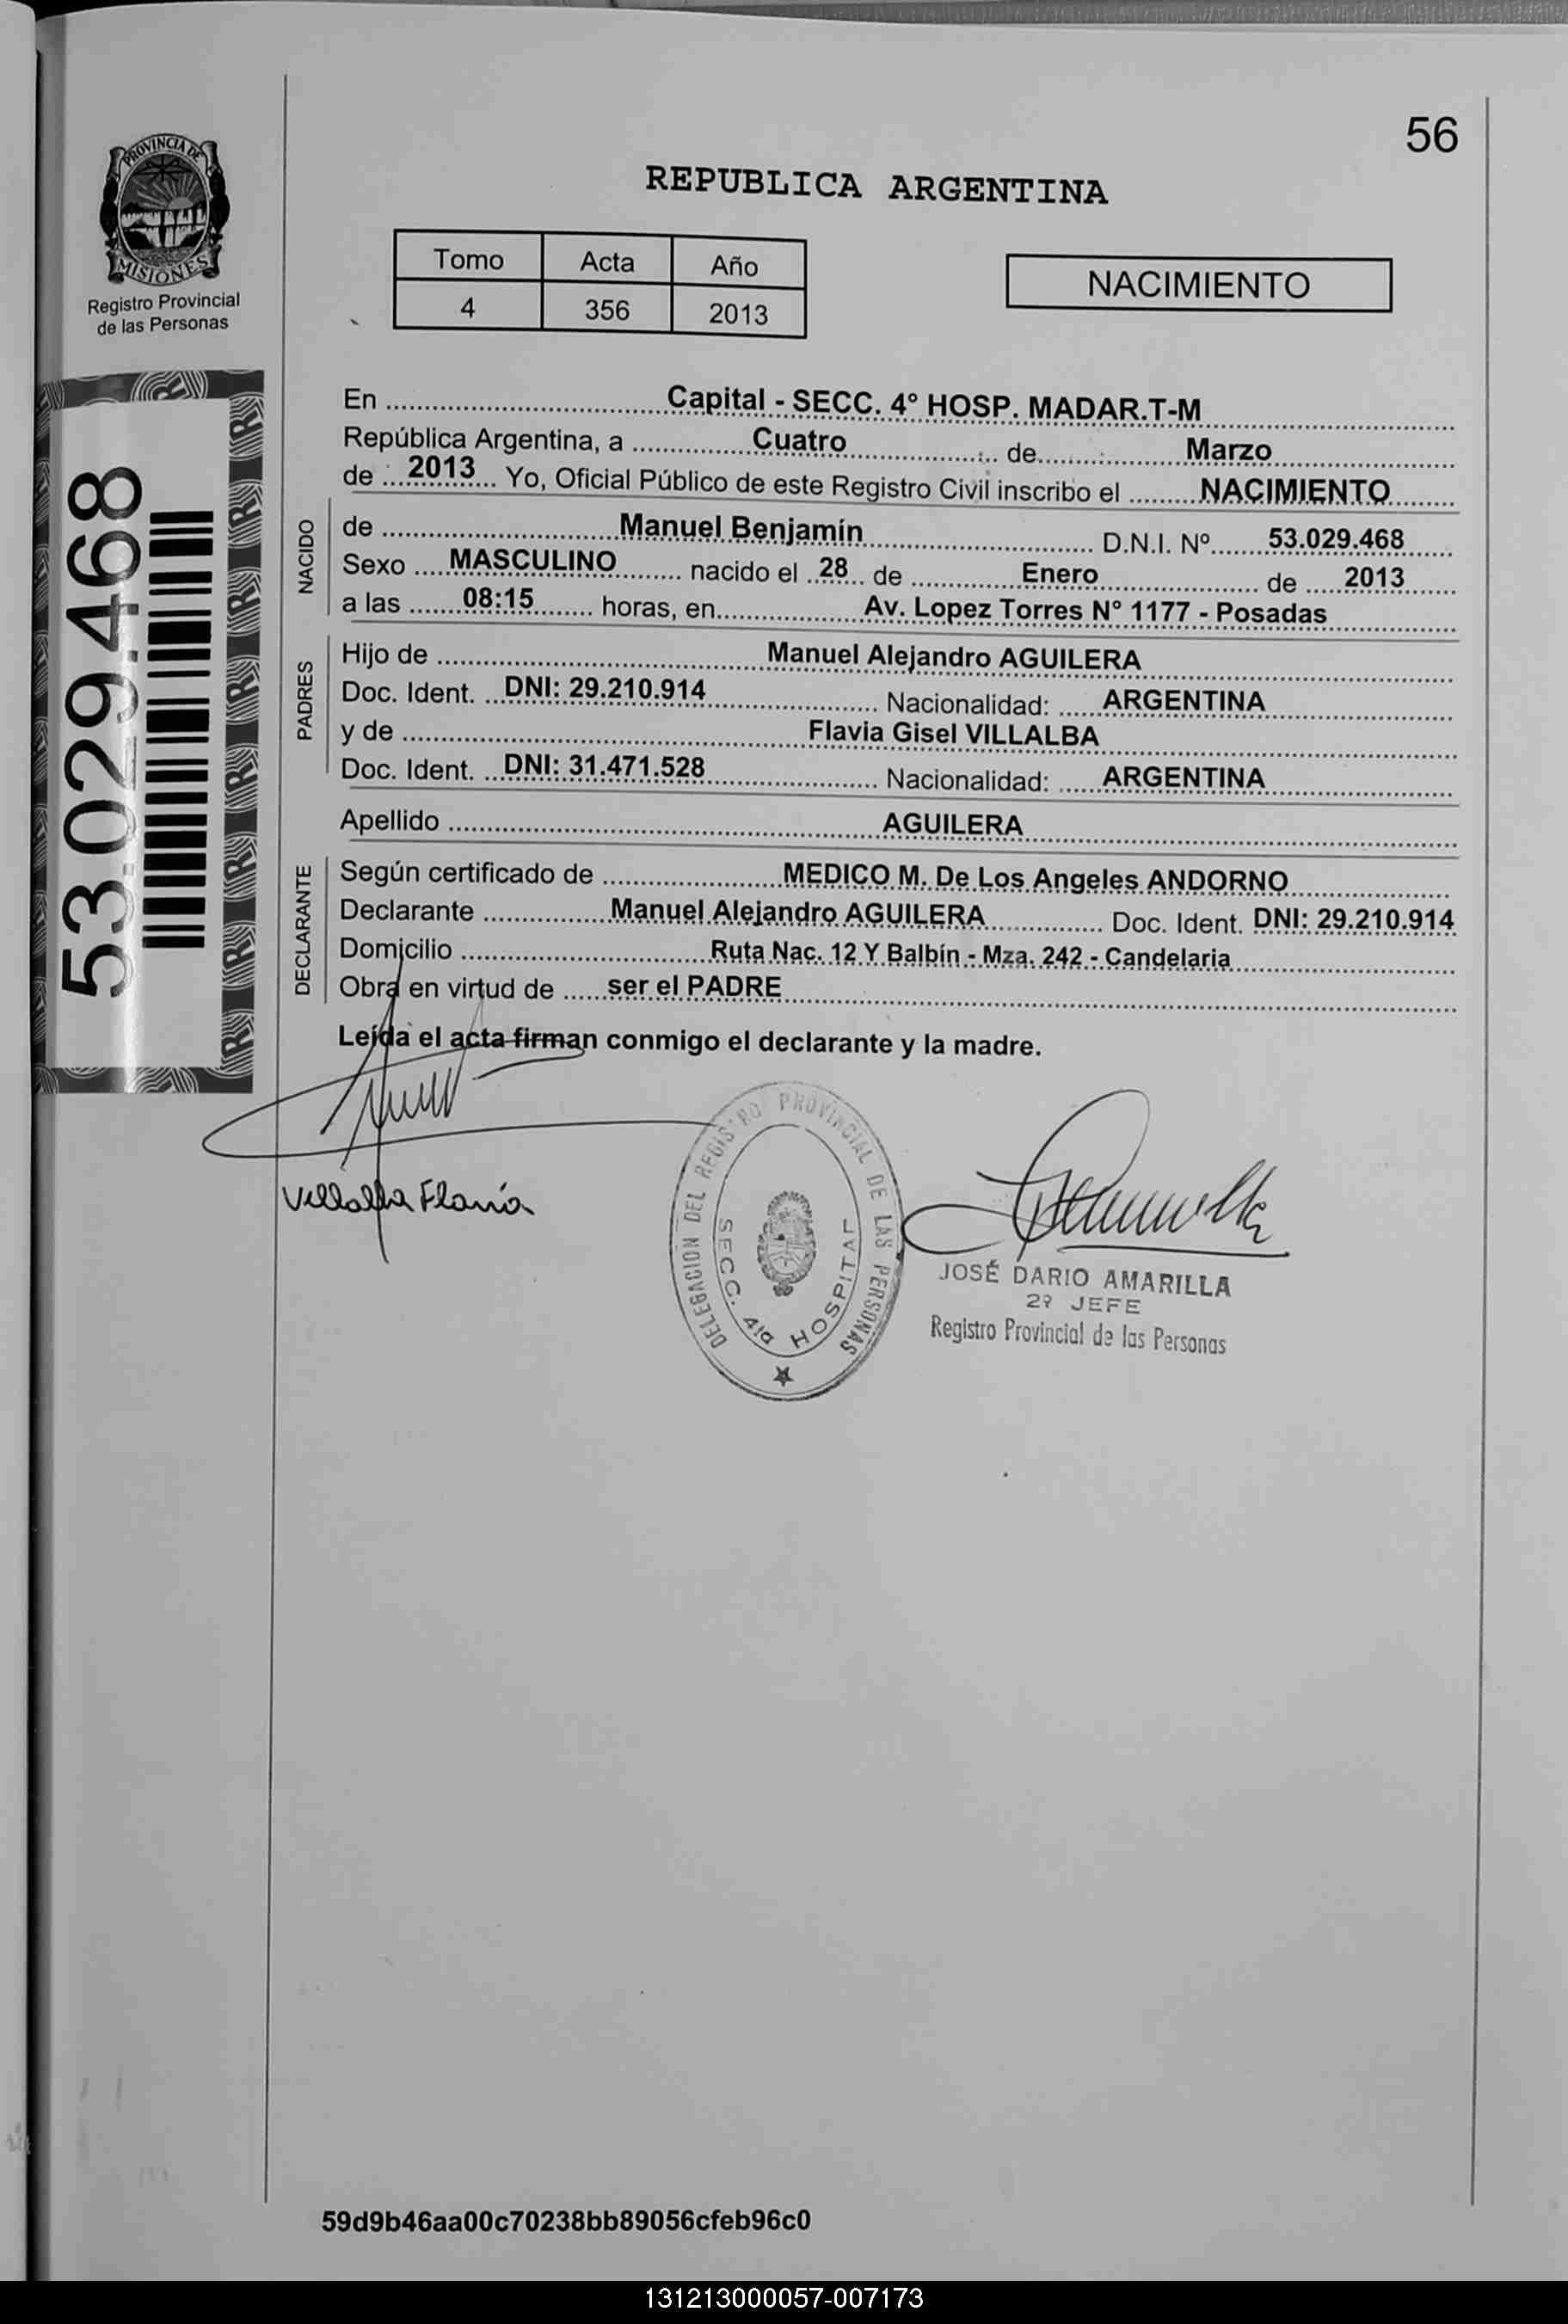 56
PROVINCIA DE
MISIONES
Registro Provincial
de las Personas
REPUBLICA ARGENTINA
Tomo Acta Año
4 356 2013
NACIMIENTO
53.029.468
En Capital - SECC. 4° HOSP. MADAR.T-M
República Argentina, a Cuatro de Marzo
de 2013 Yo, Oficial Público de este Registro Civil inscribo el NACIMIENTO
NACIDO
de Manuel Benjamín D.N.I. Nº 53.029.468
Sexo MASCULINO nacido el 28 de Enero de 2013
a las 08:15 horas, en Av. Lopez Torres N° 1177 - Posadas
PADRES
Hijo de Manuel Alejandro AGUILERA
Doc. Ident. DNI: 29.210.914 Nacionalidad: ARGENTINA
y de Flavia Gisel VILLALBA
Doc. Ident. DNI: 31.471.528 Nacionalidad: ARGENTINA
Apellido AGUILERA
DECLARANTE
Según certificado de MEDICO M. De Los Angeles ANDORNO
Declarante Manuel Alejandro AGUILERA Doc. Ident. DNI: 29.210.914
Domicilio Ruta Nac. 12 Y Balbín - Mza. 242 - Candelaria
Obra en virtud de ser el PADRE
Leída el acta firman conmigo el declarante y la madre.
Villalba Flavia
DELEGACION DEL REGISTRO PROVINCIAL DE LAS PERSONAS
SECC. 4ta HOSPITAL
JOSÉ DARIO AMARILLA
2º JEFE
Registro Provincial de las Personas
59d9b46aa00c70238bb89056cfeb96c0
131213000057-007173